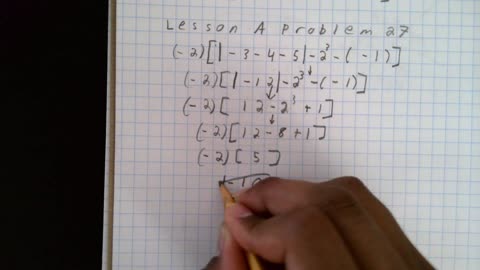 Lesson A Problem 27
(-2)[|-3-4-5|-2³-(-1)]
(-2)[|-12|-2³-(-1)]
(-2)[12-2³+1]
(-2)[12-8+1]
(-2)[5]